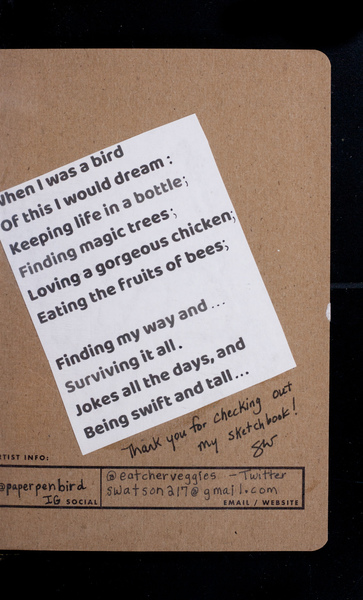 When I was a bird
Of this I would dream :
Keeping life in a bottle;
Finding magic trees;
Loving a gorgeous chicken;
Eating the fruits of bees;
Finding my way and ...
Surviving it all.
Jokes all the days, and
Being swift and tall ...
Thank you for checking out
my sketchbook!
SW
TIST INFO:
@paperpenbird
IG SOCIAL
@eatcherveggies - Twitter
swatson217@gmail.com
EMAIL / WEBSITE